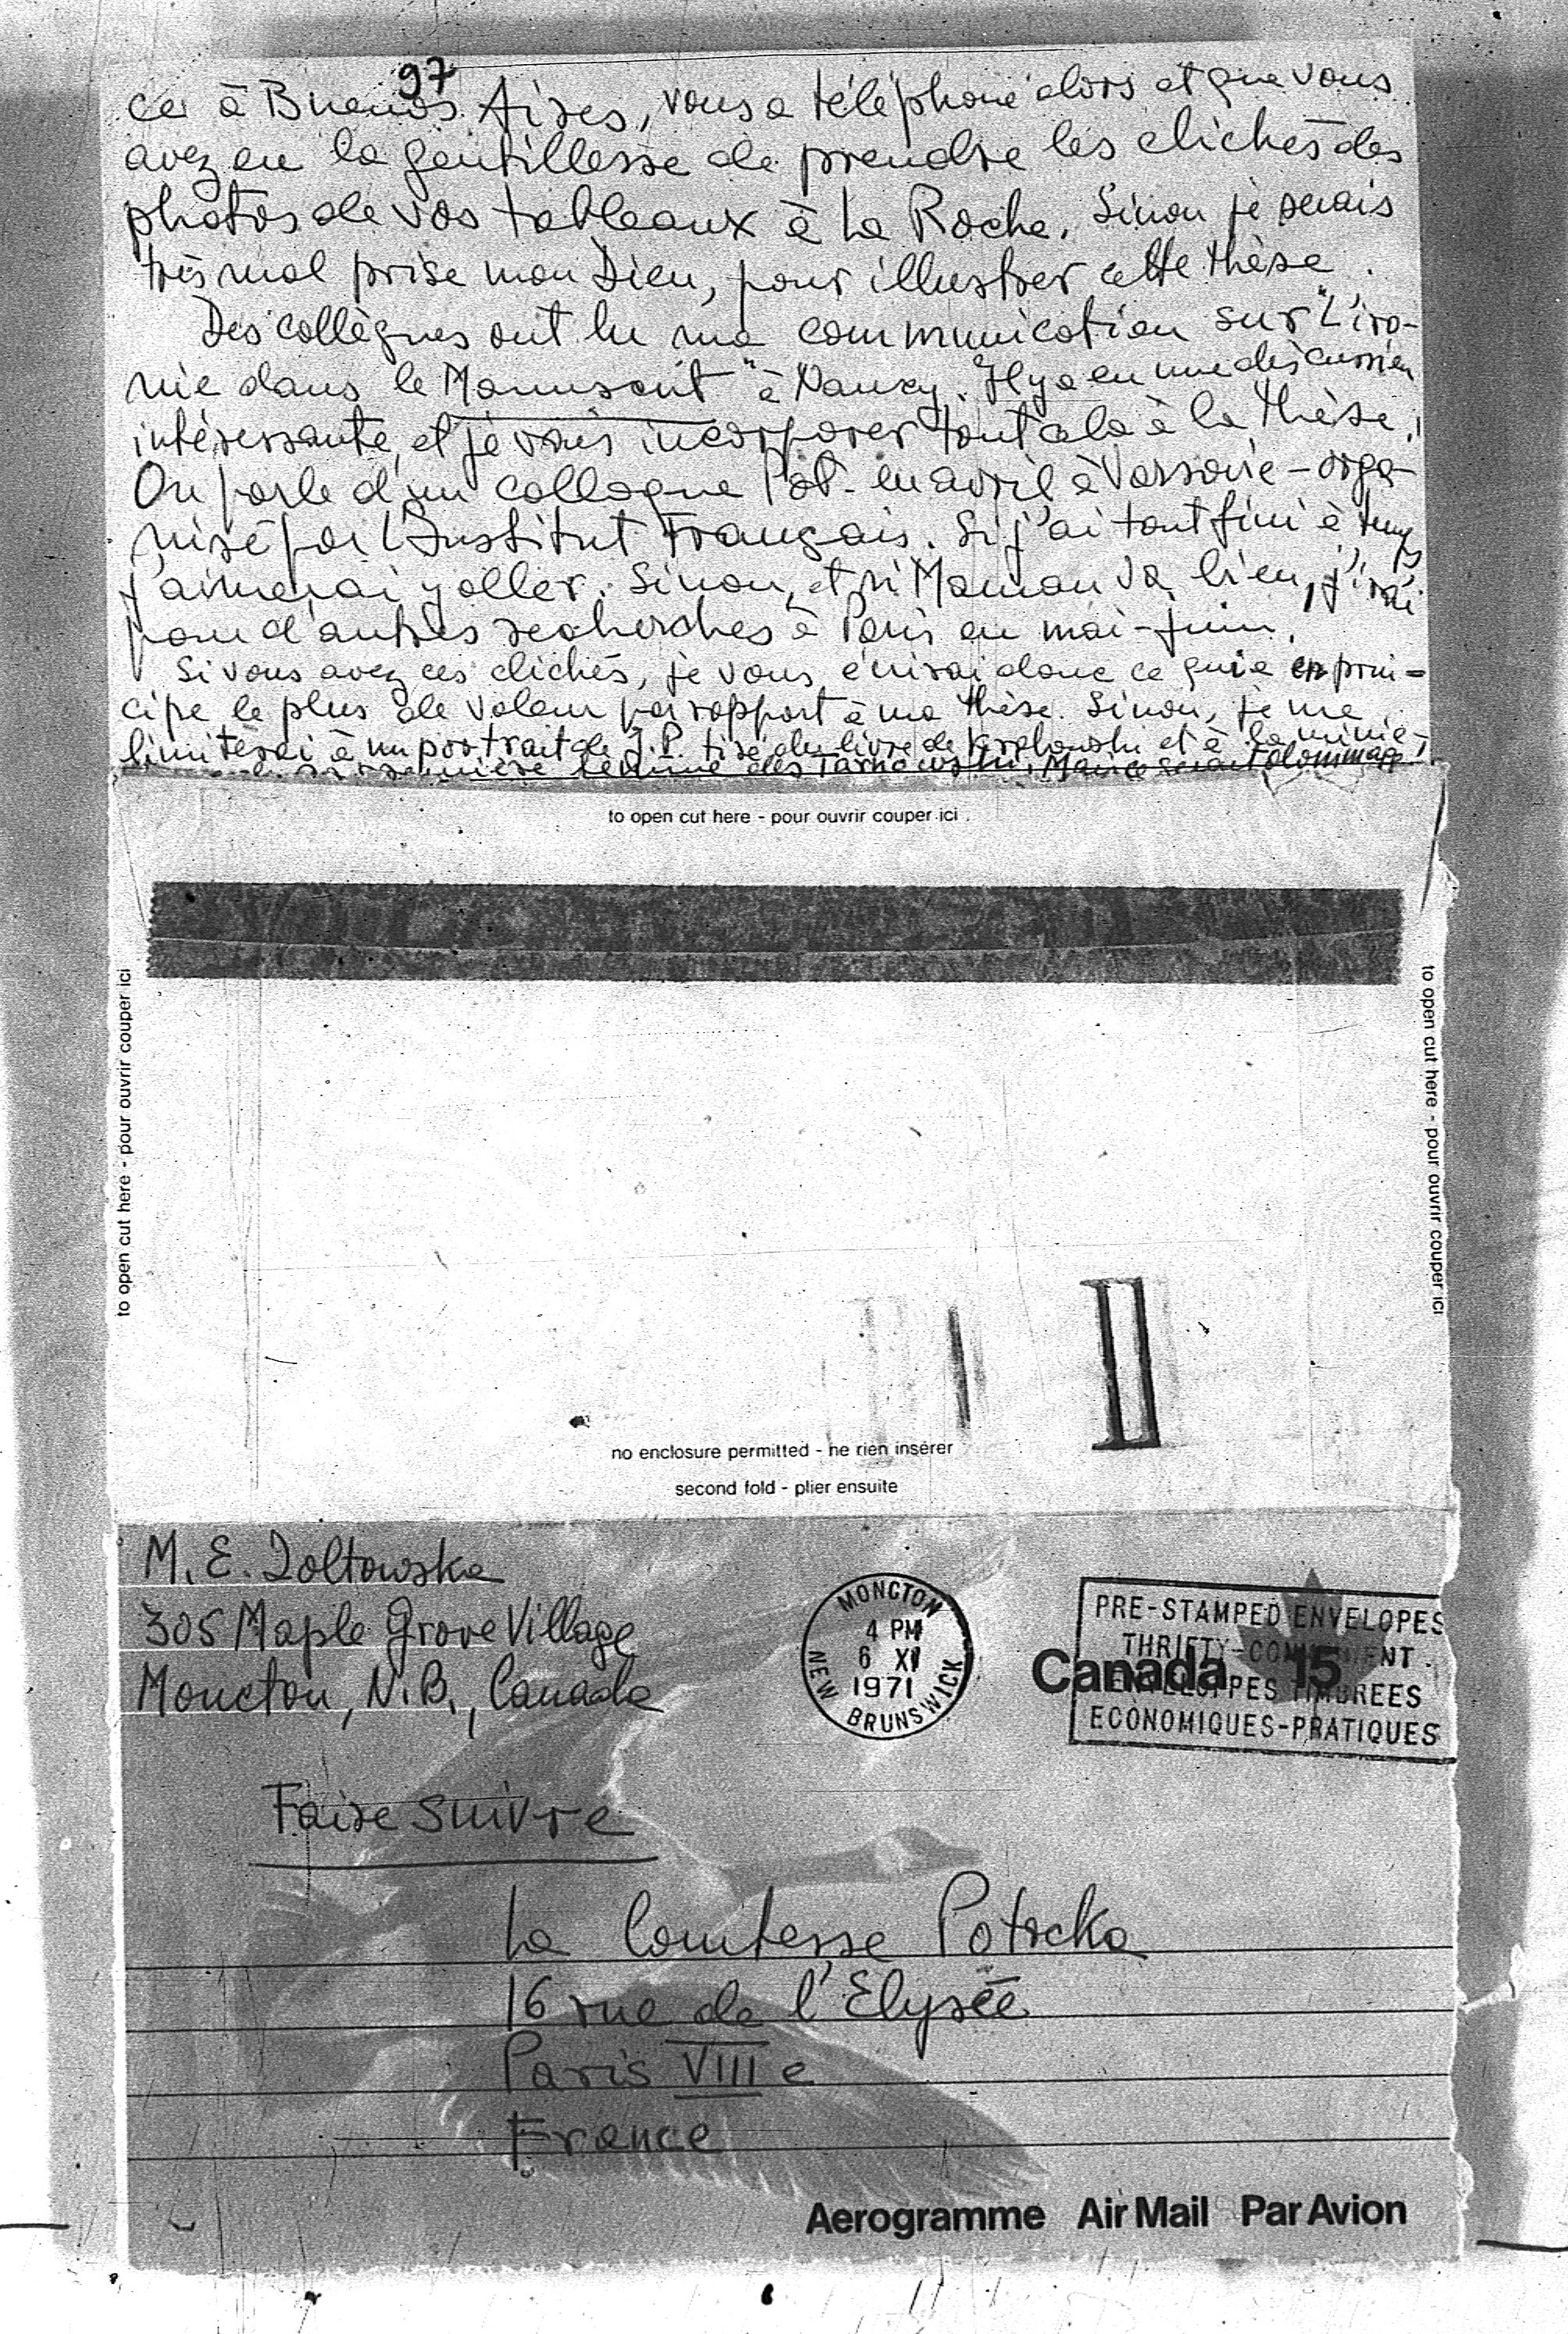 97
ce à Buenos Aires, vous a téléphoné alors et que vous
avez eu la gentillesse de prendre les clichés des
photos de vos tableaux à La Roche. Sinon je serais
très mal prise mon Dieu, pour illustrer cette thèse.
Des collègues ont lu ma communication sur "L'iro-
nie dans le Manuscrit" à Nancy. Il y a eu une discussion
intéressante, et je vais incorporer tout cela à la thèse.
On parle d'un colloque Pot. en avril à Varsovie - orga-
nisé par l'Institut Français. Si j'ai tout fini à temps
j'aimerai y aller. Sinon, et si Maman va bien, j'irai
pour d'autres recherches à Paris en mai-juin.
Si vous avez ces clichés, je vous écrirai donc ce qui a en prin-
cipe le plus de valeur par rapport à ma thèse. Sinon, je me
limiterai à un portrait de J.P. tiré du livre de et à la minia-
première femme des Tarnowski. Mais ce serait dommage
to open cut here - pour ouvrir couper ici
to open cut here - pour ouvrir couper ici
to open cut here - pour ouvrir couper ici
no enclosure permitted - ne rien insérer
second fold - plier ensuite
M. E. Zoltowska
305 Maple Grove Village
Moncton, N.B., Canada
MONCTON
4 PM
6 XI
1971
NEW BRUNSWICK
PRE-STAMPED ENVELOPES
THRIFTY-CONVENIENT
Canada 15
ENVELOPPES TIMBREES
ECONOMIQUES-PRATIQUES
Faire suivre
La Comtesse Potocka
16 rue de l'Elysée
Paris VIII e
France
Aerogramme Air Mail Par Avion